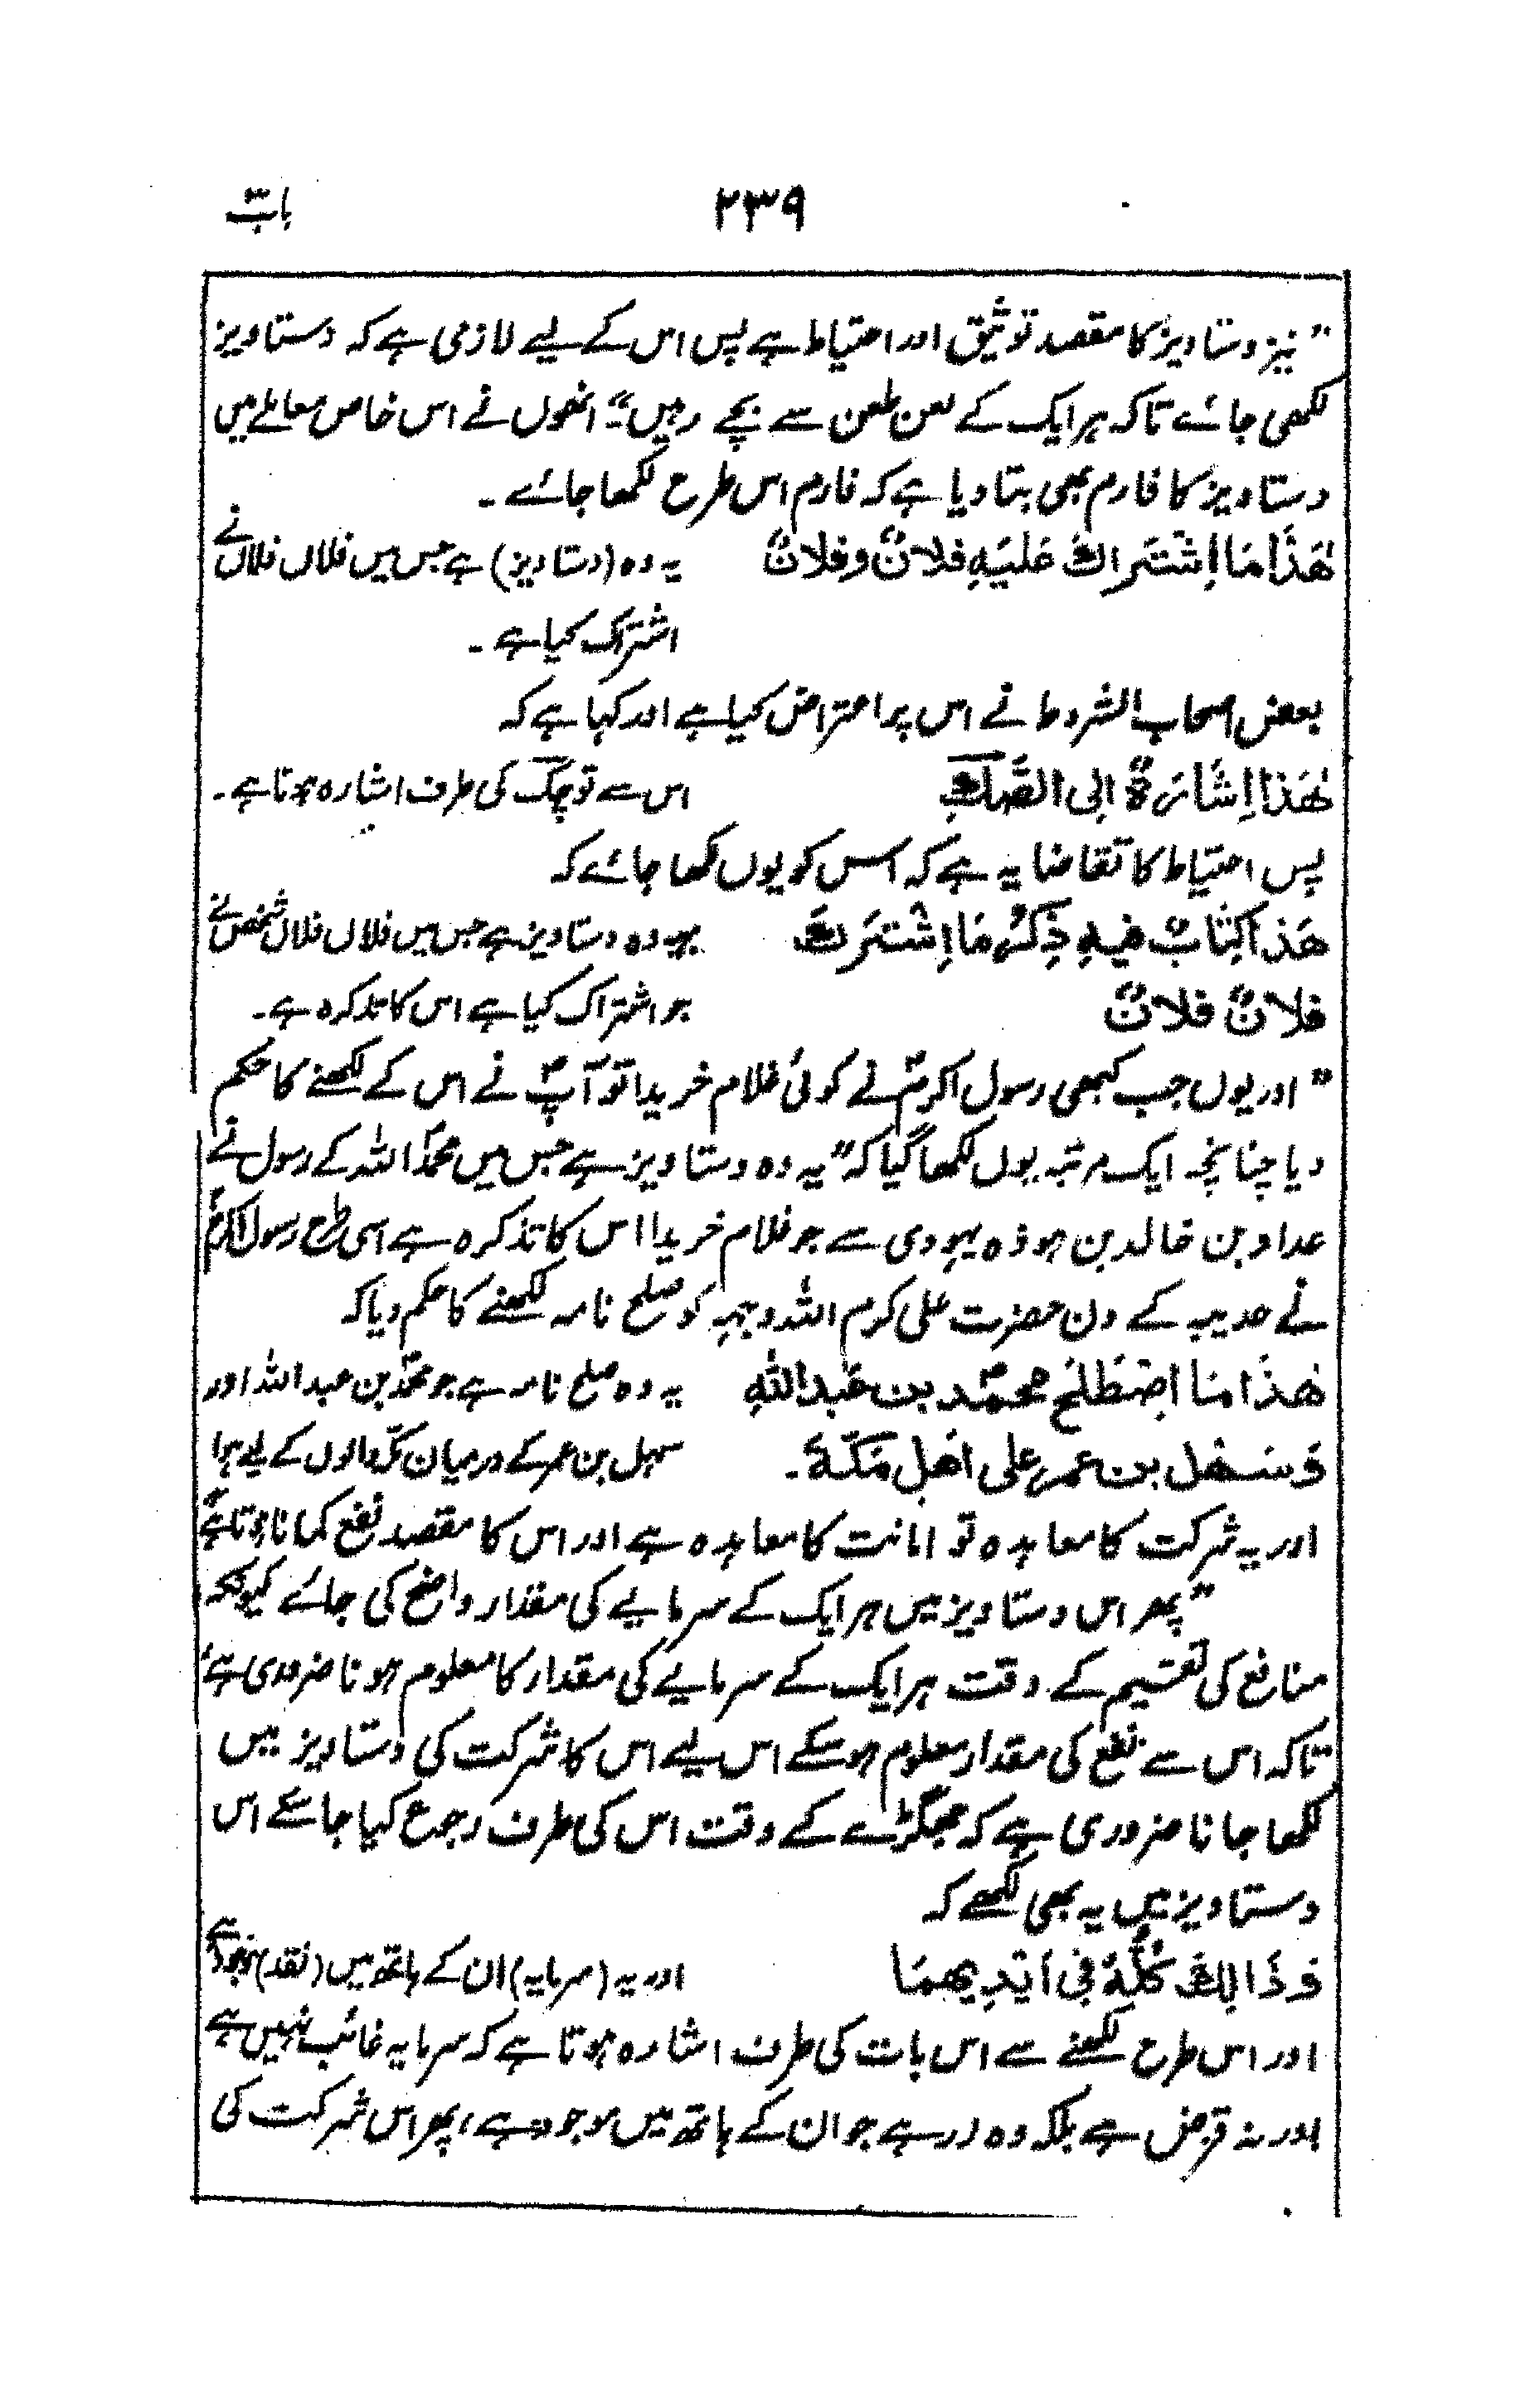 باب ۲۳۹
"نیز دستاویز کا مقصد توثیق اور احتیاط ہے پس اس کے لیے لازمی ہے کہ دستاویز
لکھی جائے تاکہ ہر ایک کے لعن طعن سے بچے رہیں"۔ انھوں نے اس خاص معاملے میں
دستاویز کا فارم بھی بتا دیا ہے کہ فارم اس طرح لکھا جائے۔
ھٰذَا مَا اِشْتَرَاكَ عَلَیْہِ فلانٌ و فلانٌ یہ وہ (دستاویز) ہے جس میں فلاں فلاں نے
اشتراک کیا ہے۔
بعض اصحاب الشروط نے اس پر اعتراض کیا ہے اور کہا ہے کہ
ھٰذَا اِشَارَةٌ اِلی الصَّكِّ اس سے تو چک کی طرف اشارہ ہوتا ہے۔
پس احتیاط کا تقاضا یہ ہے کہ اس کو یوں لکھا جائے کہ
ھَذَا کِتَابٌ فیہِ ذِکْرُ مَا اِشْتَرَكَ یہ وہ دستاویز ہے جس میں فلاں فلاں شخص نے
فلانٌ فلانٌ جو اشتراک کیا ہے اس کا تذکرہ ہے۔
"اور یوں جب کبھی رسول اکرمؐ نے کوئی غلام خریدا تو آپؐ نے اس کے لکھنے کا حکم
دیا چنانچہ ایک مرتبہ یوں لکھا گیا کہ "یہ وہ دستاویز ہے جس میں محمدؐ اللہ کے رسول نے
عداء بن خالد بن ہوذہ یہودی سے جو غلام خریدا اس کا تذکرہ ہے اسی طرح رسول اکرمؐ
نے حدیبیہ کے دن حضرت علی کرم اللہ وجہہ کو صلح نامہ لکھنے کا حکم دیا کہ
ھٰذَا مَا اِصْطَلَحَ محمّد بن عَبداللّٰہِ یہ وہ صلح نامہ ہے جو محمدؐ بن عبداللہ اور
وَسَھْل بن عمر علی اَھْلِ مَکّةَ۔ سہل بن عمر کے درمیان مکہ والوں کے لیے ہوا
اور یہ شرکت کا معاہدہ تو امانت کا معاہدہ ہے اور اس کا مقصد نفع کمانا ہوتا ہے"
"پھر اس دستاویز میں ہر ایک کے سرمایے کی مقدار واضح کی جائے کیونکہ
منافع کی تقسیم کے وقت ہر ایک کے سرمایے کی مقدار کا معلوم ہونا ضروری ہے،
تاکہ اس سے نفع کی مقدار معلوم ہو سکے اس لیے اس کا شرکت کی دستاویز میں
لکھا جانا ضروری ہے کہ جھگڑے کے وقت اس کی طرف رجوع کیا جا سکے اس
دستاویز میں یہ بھی لکھے کہ
وَذَالِكَ کُلُّہٗ فِی اَیْدِیھِمَا اور یہ (سرمایہ) ان کے ہاتھ میں (نقد) موجود ہے
اور اس طرح لکھنے سے اس بات کی طرف اشارہ ہوتا ہے کہ سرمایہ غائب نہیں ہے
اور نہ قرض ہے بلکہ وہ زر ہے جو ان کے ہاتھ میں موجود ہے، پھر اس شرکت کی